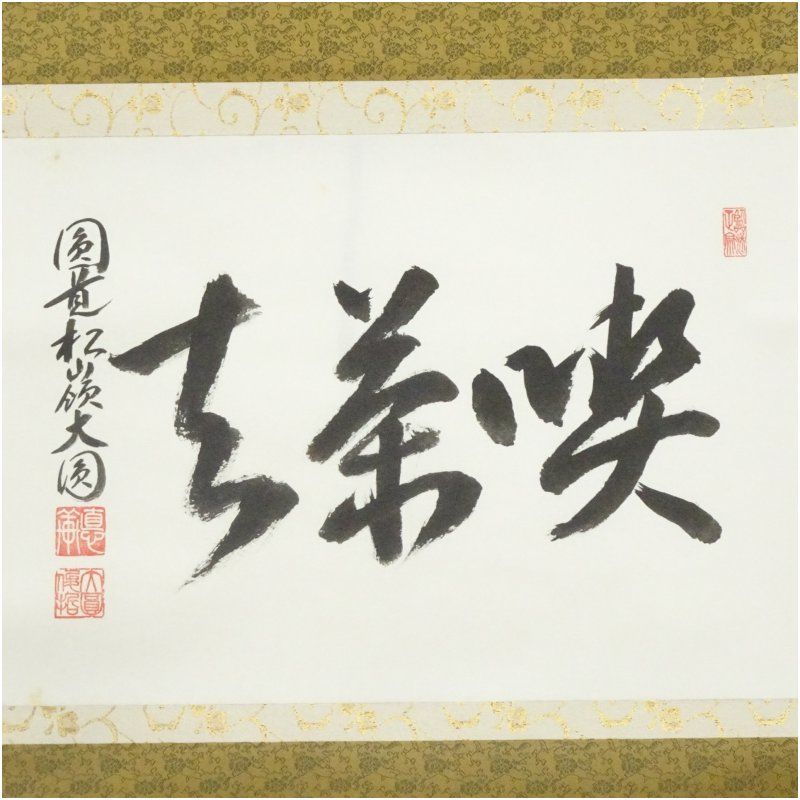 喫茶去
圓覚松嶺大圓